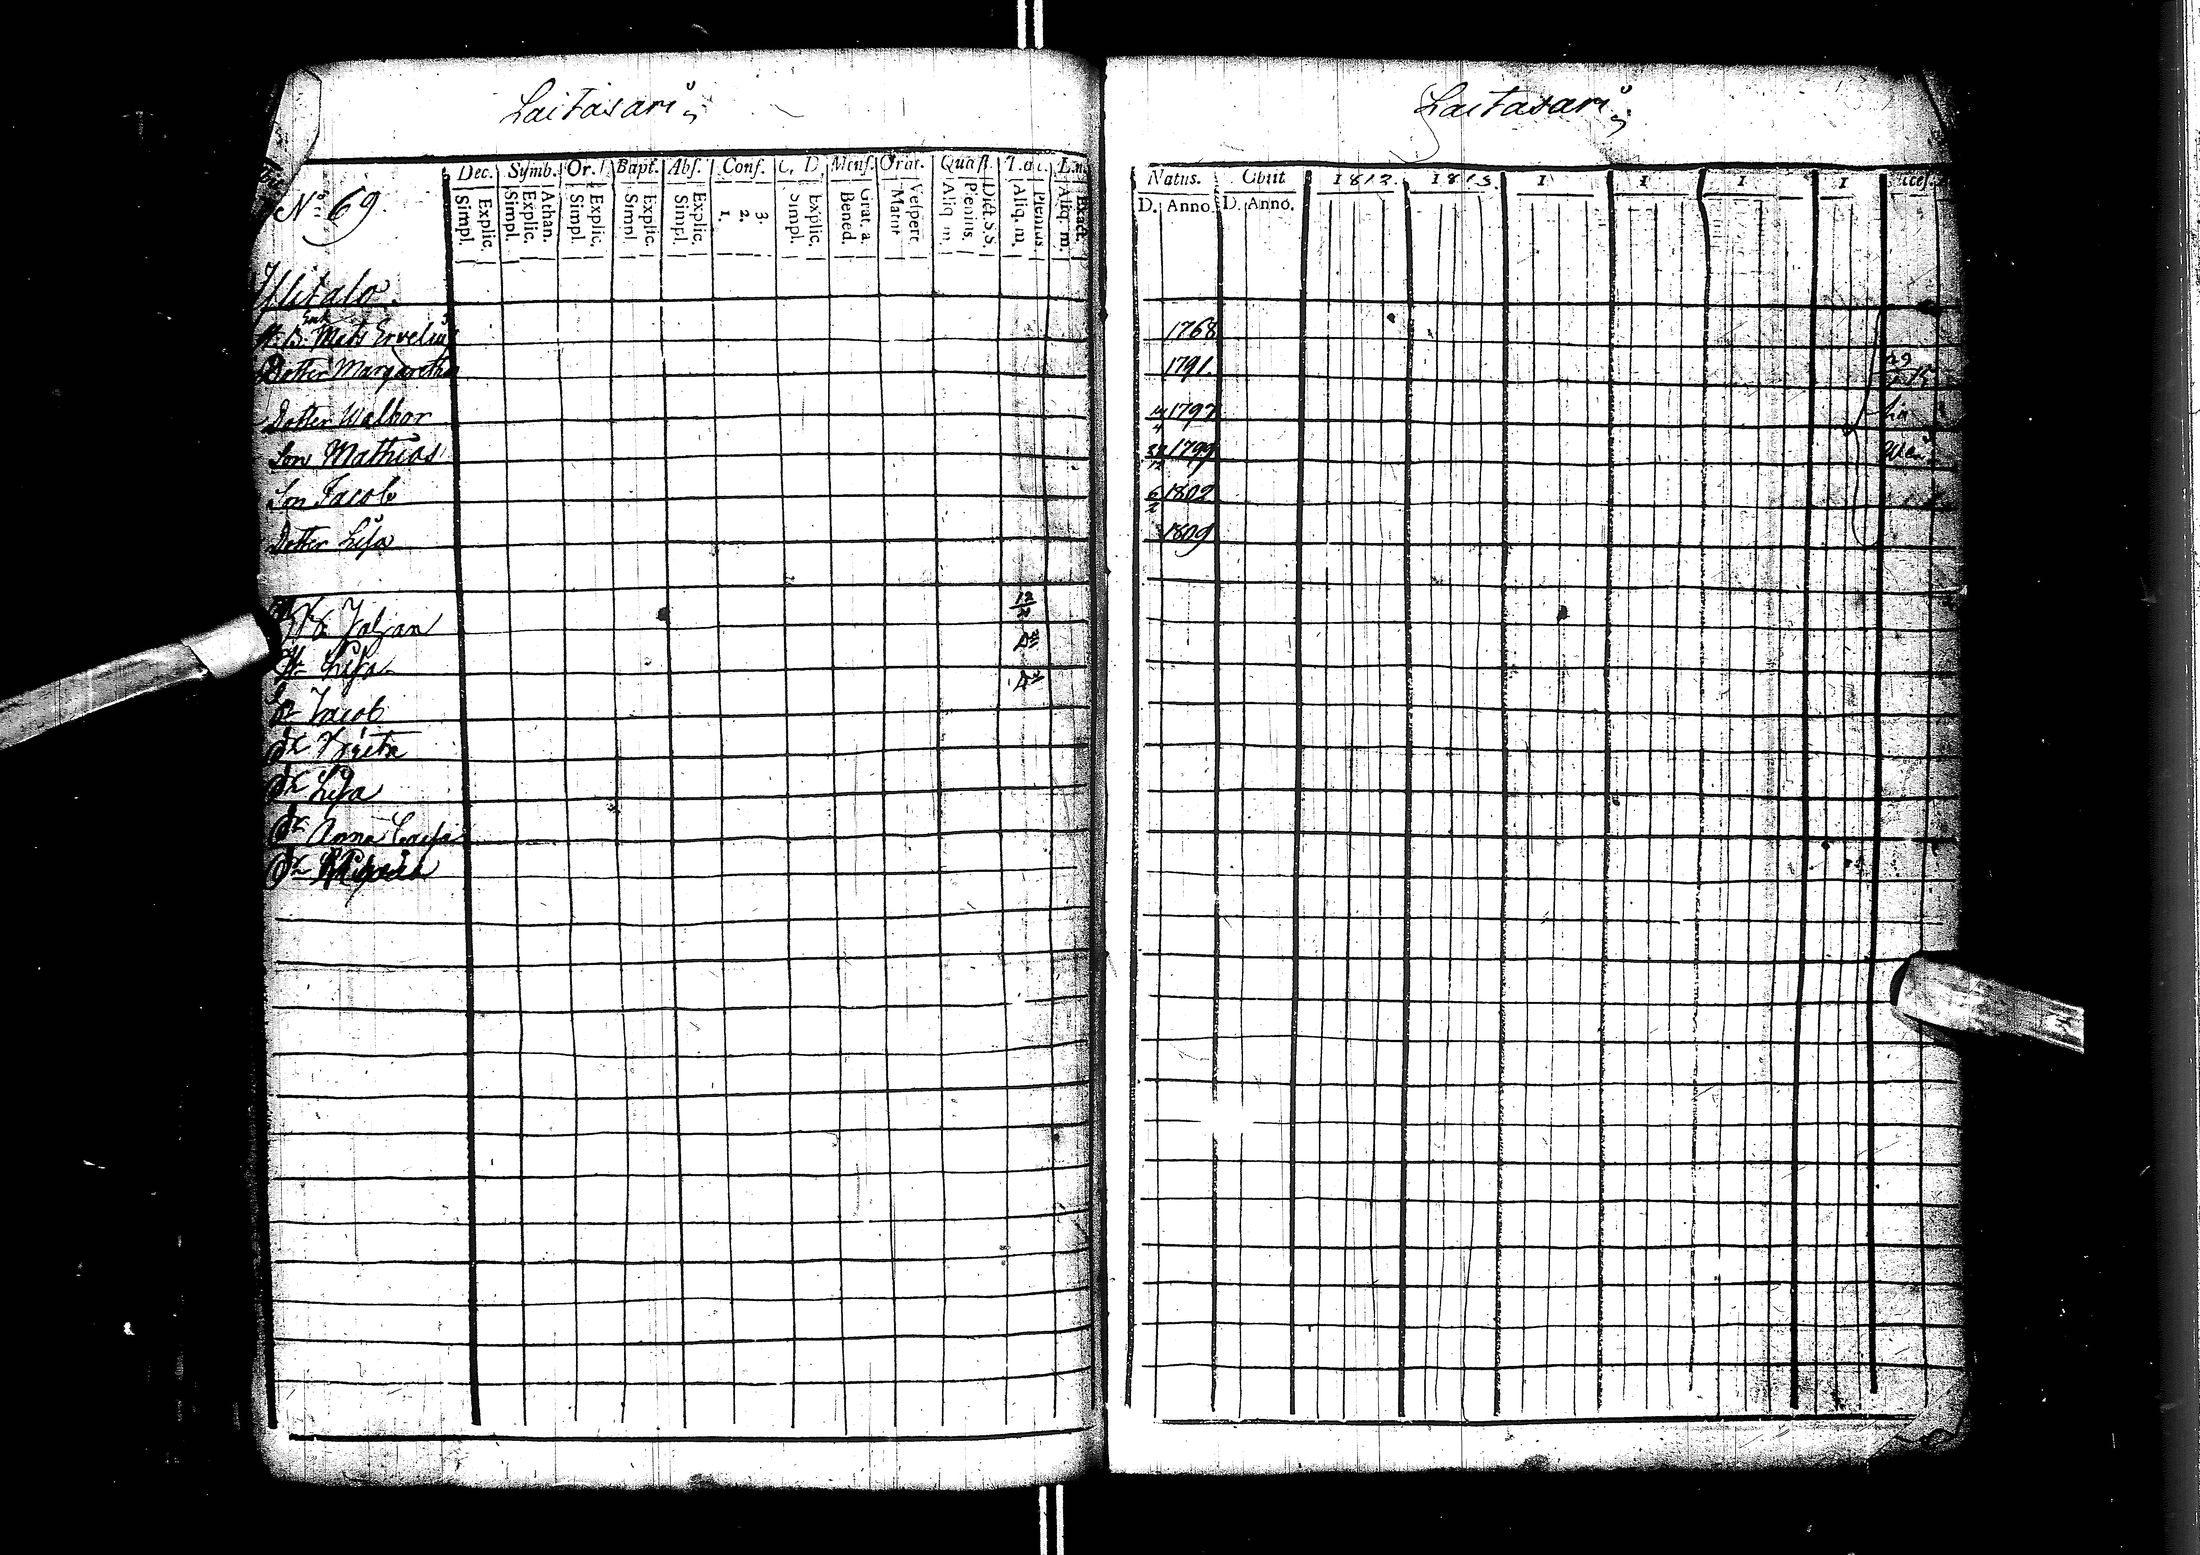 Laitasari
N:o 69
Dec. Symb. Or. Bapt. Abs. Conf. C. D. Mens. Orat. Quæst.
Explic. Simpl. Athan. Explic. Simpl. Explic. Simpl. Explic. Simpl. Explic. Simpl. 3. 2. 1. Explic. Simpl. Grat. a. Bened. Vespert. Matut. Dict. S.S. Plenius. Aliq. m. Plenius. Aliq. m. Exact. Aliq. m.
Ylitalo.
Mats Ervelius
Dotter Margaretha
Dotter Walbor
Son Mathias
Son Jacob
Dotter Lisa
Johan 12
Lisa Do
Jacob Do
Greta
Lisa
Anna
Laitasari
Natus. Obiit 1812. 1813. 1 1 1 1
D. Anno. D. Anno.
1768
1791.
14/4 1797
1799
6/2 1802
1809